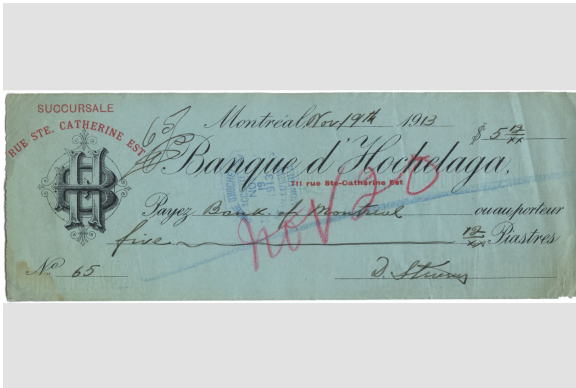 SUCCURSALE
RUE STE. CATHERINE EST
Montréal, Nov 19th 1913
$ 5 12/xx
Banque d'Hochelaga,
711 rue Ste-Catherine Est
NOV 19 1913
Payez Bank of Montreal ou au porteur
five 12/xx Piastres
NOV 20
No 65
HB